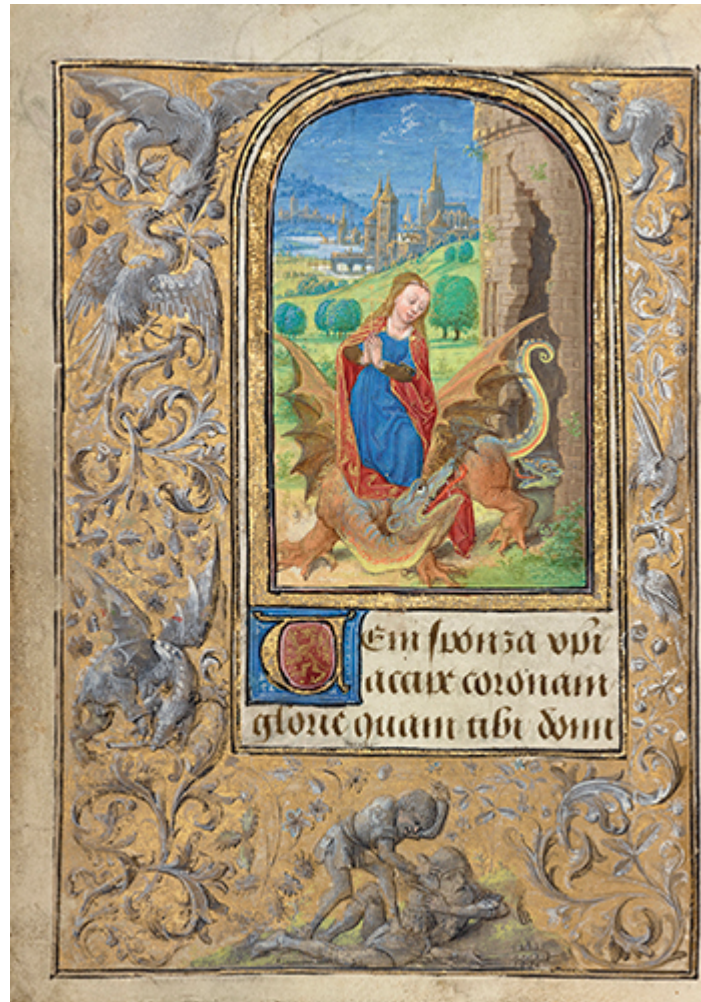 Veni sponza xpi
accipe coronam
glorie quam tibi domi